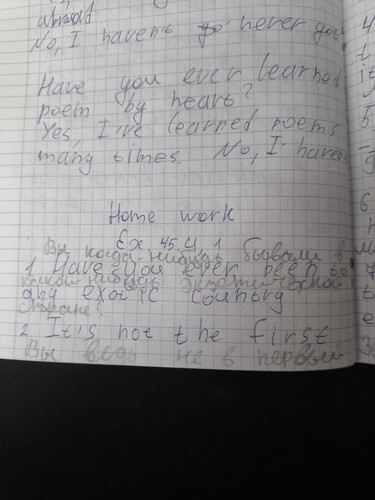 abroad
No, I haven't never got
Have you ever learned
poem by heart?
Yes, I've learned poems
many times. No, I haven
Home work
Ex. 45.4, 1
Вы когда-нибудь бывали в
1. Have you ever been to
какой-нибудь экзотической
any exotic country
стране?
2. It is not the first
Вы ведь не в первый